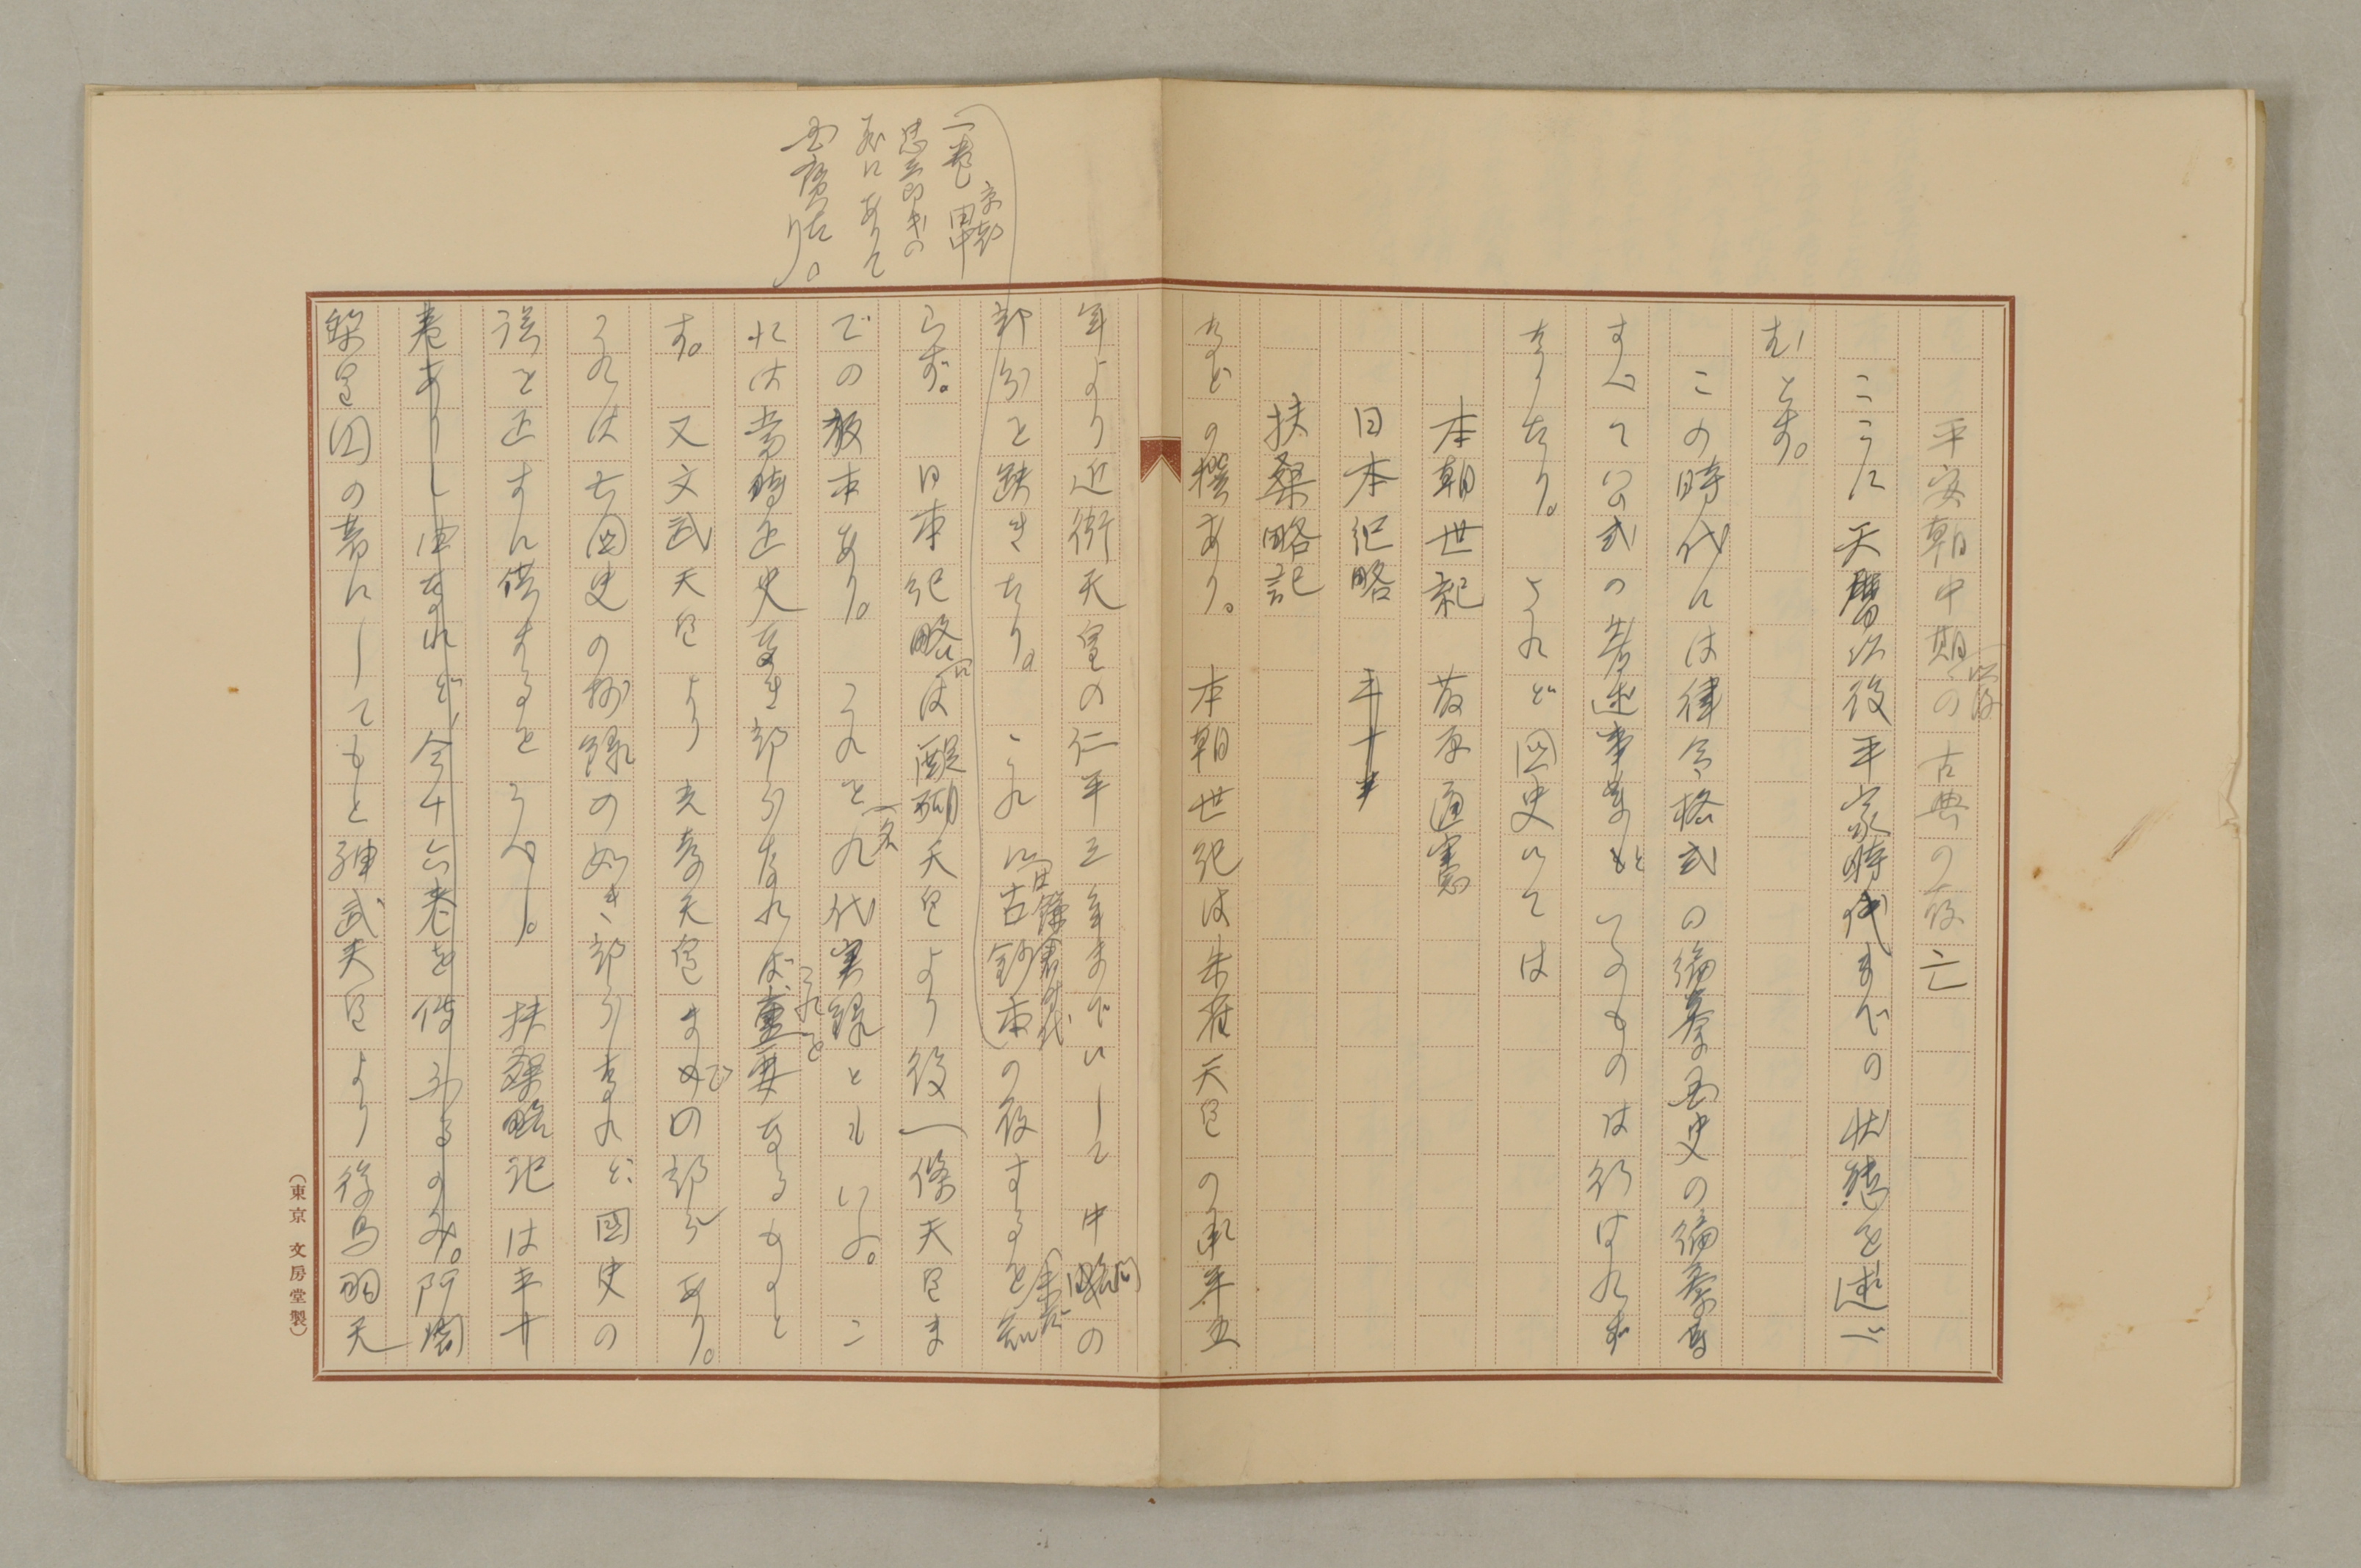 平安朝中期以後の古典の存亡
こゝに天暦以後平家時代までの状態を述べ
むとす。
この時代には律令格式の編纂国史の編纂等
すべて公式の著述事業といふものは行はれず
なりたり。されど国史にては
本朝世紀　藤原通憲
日本紀略
扶桑略記
などの撰あり。本朝世紀は朱雀天皇の承平五
年より近衛天皇の仁平三年までにして中間の
部分を缺きたり。これに古鈔本の存するを知
（鎌倉時代
らず。日本紀略は醍醐天皇より後一條天皇ま
での板本あり。これを一名九代実録ともいふ。こ
れは当時正史なき部分なれば之れを重要なるものと
す。又文武天皇より光孝天皇までの部分あり。
これは六国史の抄録の如き部分なれど、國史の
誤を正すに供するをうべし。扶桑略記は三十
巻ありし由なれど、今十六巻を傳ふるのみ。阿闍
梨皇円の著にしてもと神武天皇より後鳥羽天
一巻　京都田中
忠三郎氏の
家にありて
国宝たり。
（東京　文房堂製）